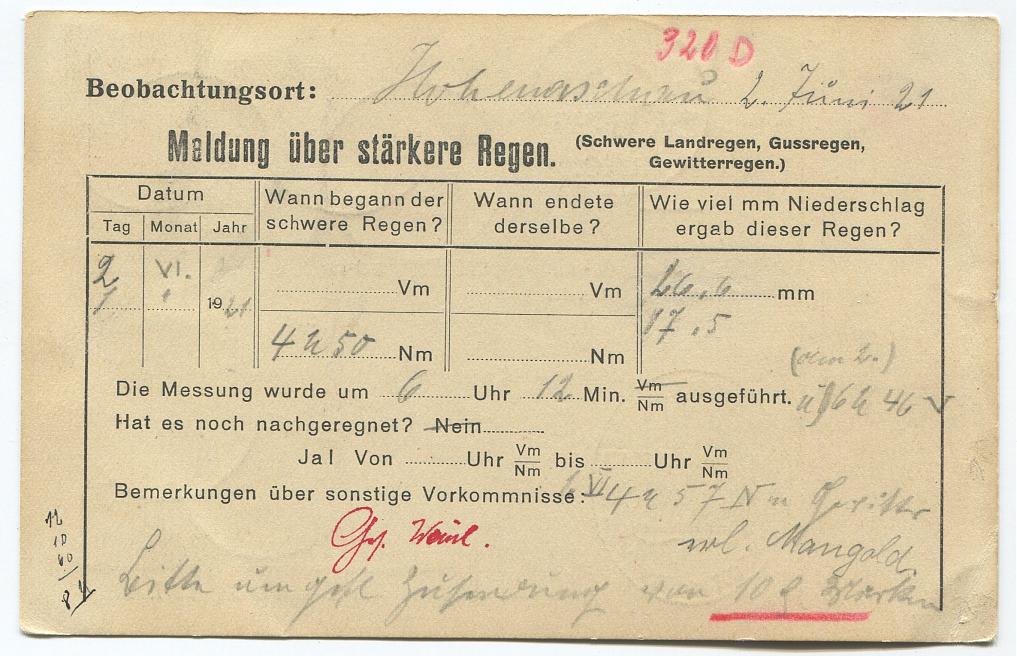 320 D
Beobachtungsort: Hohenaschau 2. Juni 21
Meldung über stärkere Regen. (Schwere Landregen, Gussregen,
Gewitterregen.)
Datum
Tag Monat Jahr
Wann begann der
schwere Regen?
Wann endete
derselbe?
Wie viel mm Niederschlag
ergab dieser Regen?
2 VI.
1 " 1921
Vm Vm 26,6 mm
17,5
4 h 50 Nm Nm
(am 2.)
Die Messung wurde um 6 Uhr 12 Min. Vm/Nm ausgeführt. 6 h 46 V
Hat es noch nachgeregnet? Nein
Ja! Von Uhr Vm/Nm bis Uhr Vm/Nm
Bemerkungen über sonstige Vorkommnisse: VI 4 h 57 N Gewitter
Mangold
Bitte um gefl. Zusendung von 10 Marken
12
10
60